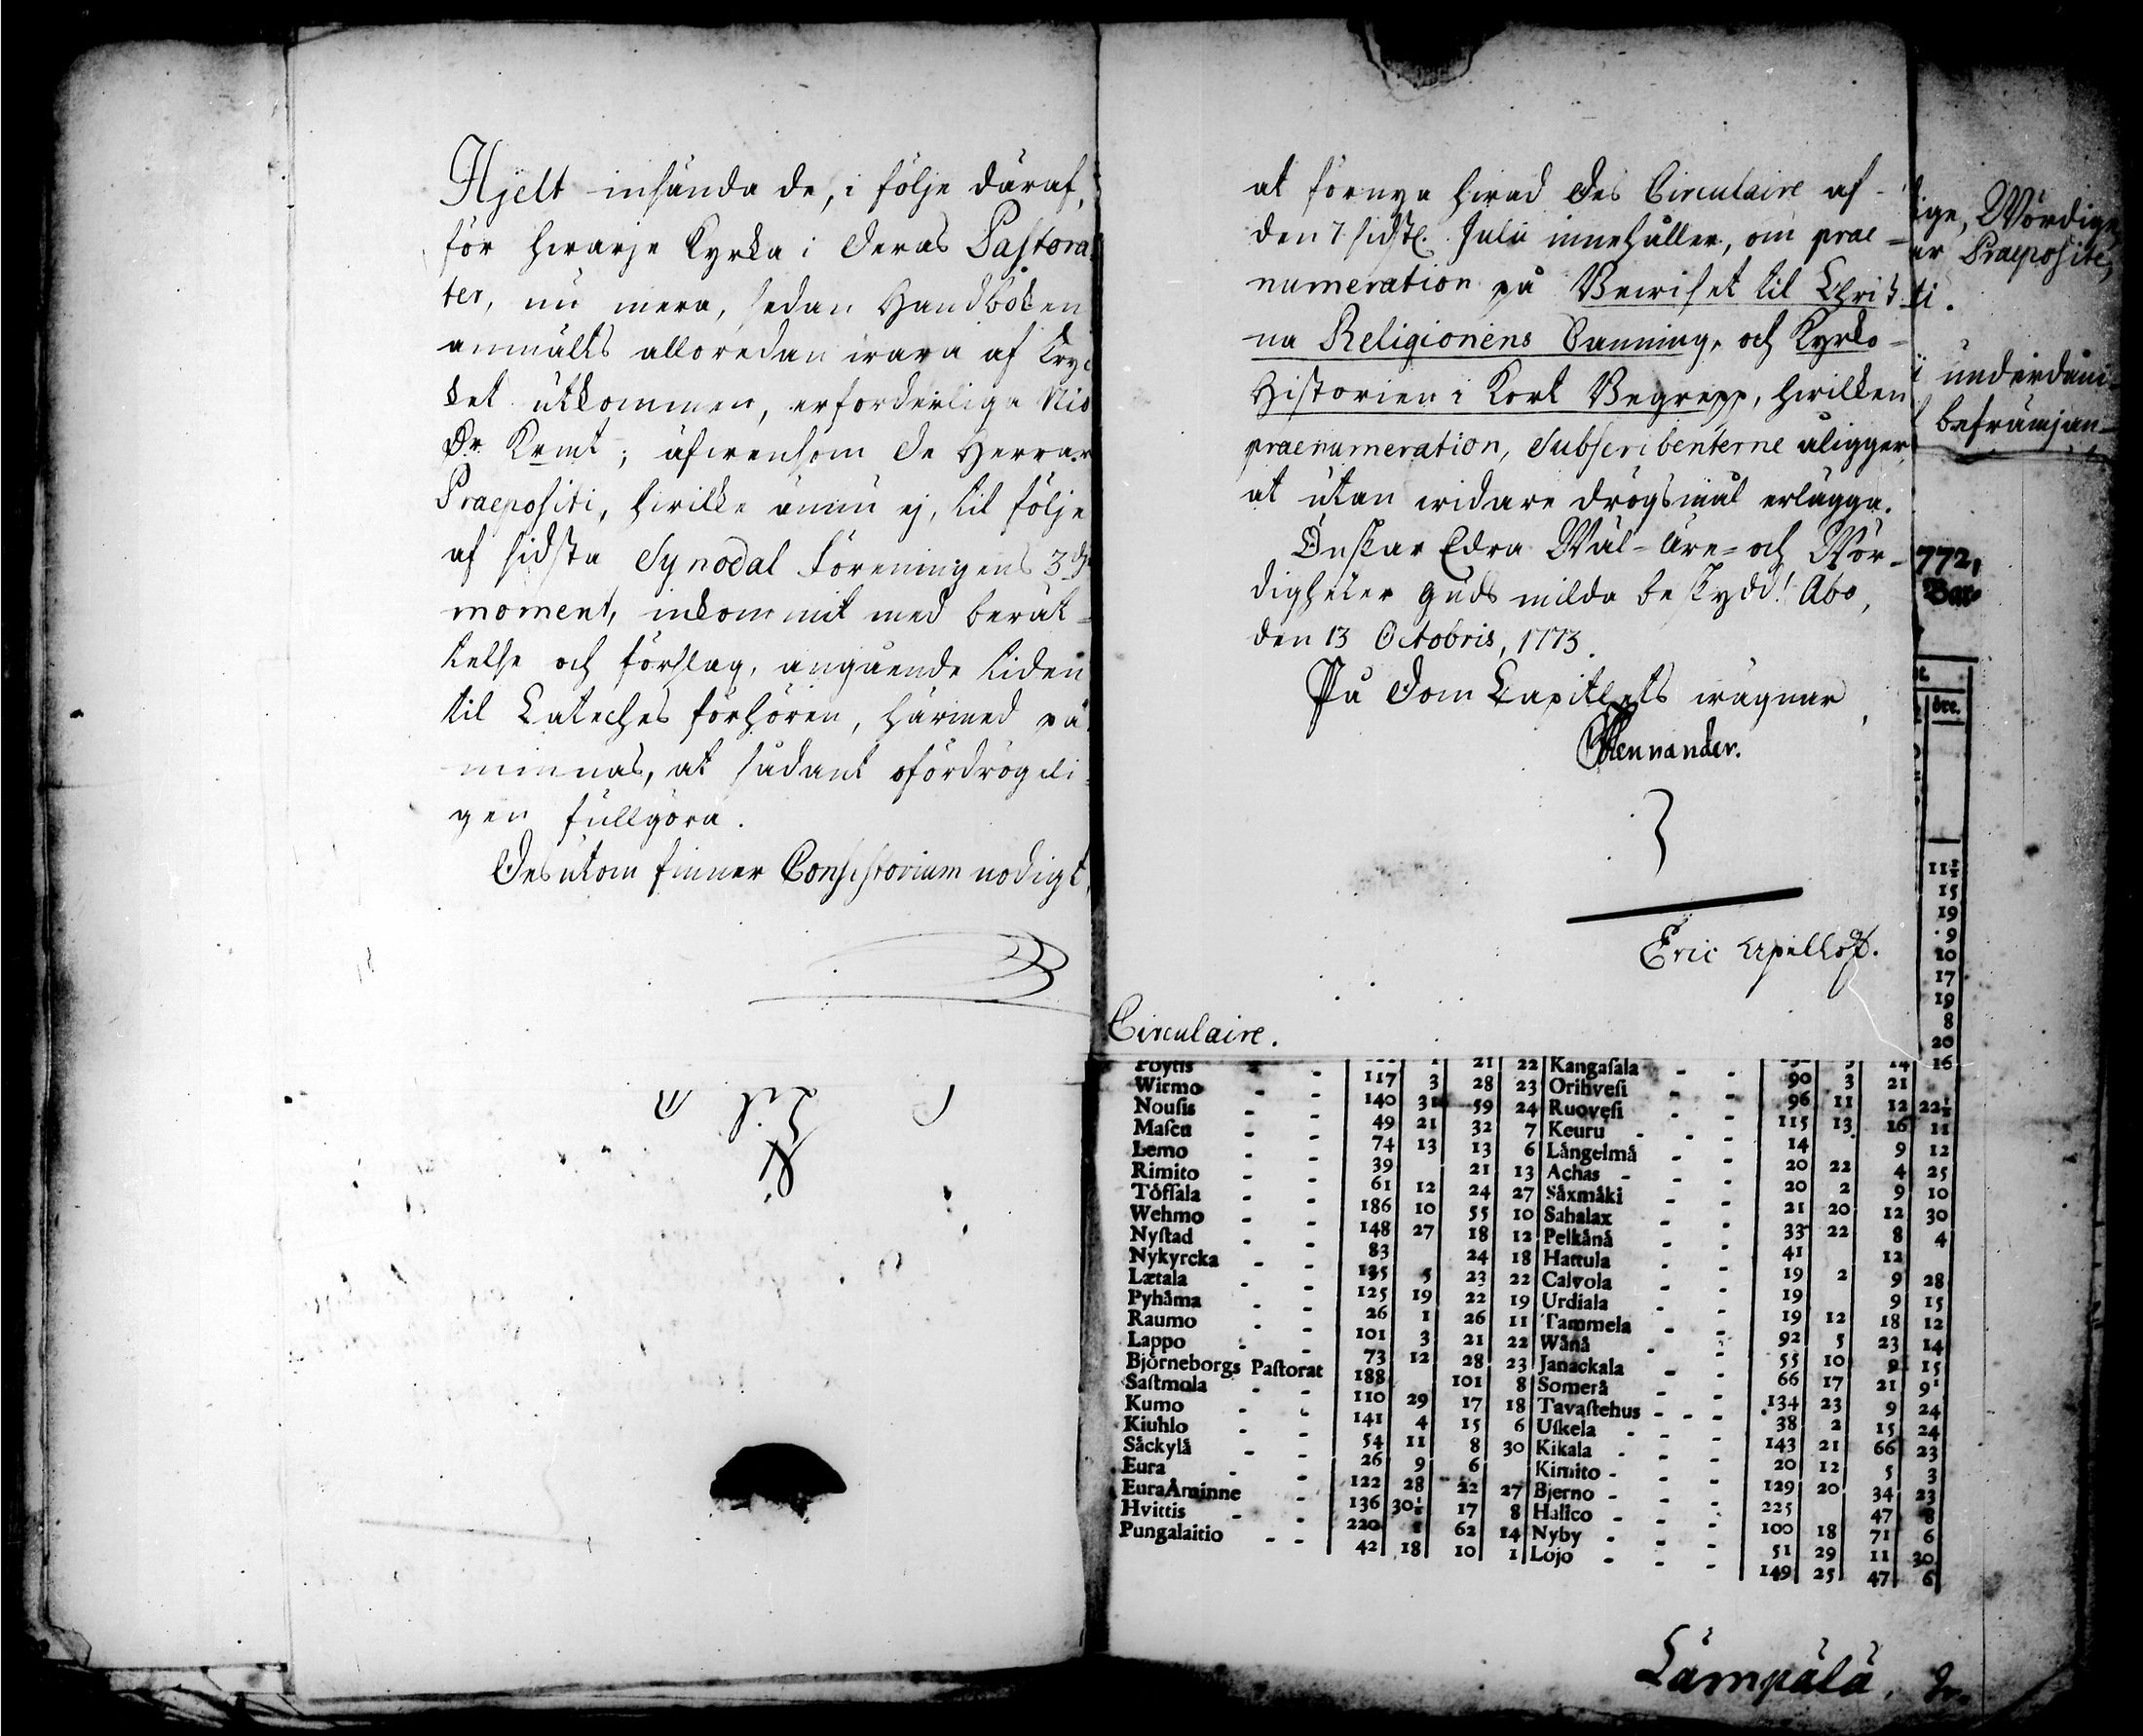 Hjelt insända de, i följe däraf,
för hwarje Kyrka i deras Pastora
ter, nu mera, sedan Handboken
anmälts alloredan wara af Tryc
ket utkommen, erforderliga Nio
Dr Krmt; äfwensom de Herrar
Praepositi, hwilke ännu ej, til följe
af sidsta Synodal Föreningens 3dje
moment, inkommit med berät=
telse och förslag, angående tiden
til Cateches förhören, härmed på
minnas, at sådant ofördrögeli
gen fullgöra.
Desutom finner Consistorium nodigt
at förnya hwad des Circulaire af
den 7 sidstl. Julii innehåller, om prae=
numeration på Bewiset til Christ
na Religionens Sanning, och Kyrko=
Historien i Kort Begrepp, hwilken
praenumeration, Subscribenterne åligger,
at utan widare drögsmål erlägga.
Önskar Edra Wäl=Äre= och Wör=
digheter Guds milda beskydd! Åbo,
den 13 Octobris, 1773.
På Dom Capitlets wägnar,
Mennander.
Eric Apelloft.
Circulaire.
ige, Wördige
er Praeposite,
ti.
i underdåni=
befrämjan=
772,
öre.
11½
15
19
9
10
17
19
8
20
16
Pöytis 1 21 22 Kangasala 14
Wirmo 117 3 28 23 Orihvesi 90 3 21
Nousis 140 31 59 24 Ruovesi 96 11 12 22½
Mascu 49 21 32 7 Keuru 115 13 16 11
Lemo 74 13 13 6 Långelmå 14 9 12
Rimito 39 21 13 Achas 20 22 4 25
Tôfsala 61 12 24 27 Såxmåki 20 2 9 10
Wehmo 186 10 55 10 Sahalax 21 20 12 30
Nystad 148 27 18 12 Pelkånå 33 22 8 4
Nykyrcka 83 24 18 Hattula 41 12
Lætala 135 5 23 22 Calvola 19 2 9 28
Pyhåma 125 19 22 19 Urdiala 19 9 15
Raumo 26 1 26 11 Tammela 19 12 18 12
Lappo 101 3 21 22 Wånå 92 5 23 14
Björneborgs Pastorat 73 12 28 23 Janackala 55 10 9 15
Sastmola 188 101 8 Somerå 66 17 21 9
Kumo 110 29 17 18 Tavastehus 134 23 9 24
Kiuhlo 141 4 15 6 Uskela 38 2 15 24
Såckylå 54 11 8 30 Kikala 143 21 66 23
Eura 26 9 6 Kimito 20 12 5 3
EuraÅminne 122 28 22 27 Bjerno 129 20 34 23
Hvittis 136 30½ 17 8 Halico 225 47 8
Pungalaitio 220 62 14 Nyby 100 18 71 6
42 18 10 1 Lojo 51 29 11 30
149 25 47 6
Lämpälä.